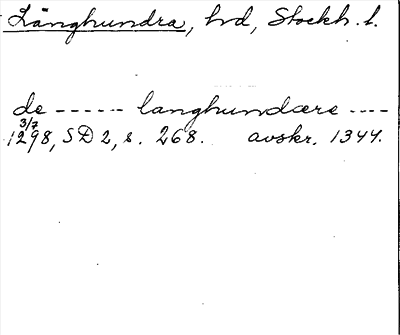 Långhundra, hd, Stockh. l.
de ------ langhundære ----
3/7
1298, SD 2, s. 268. avskr. 1344.